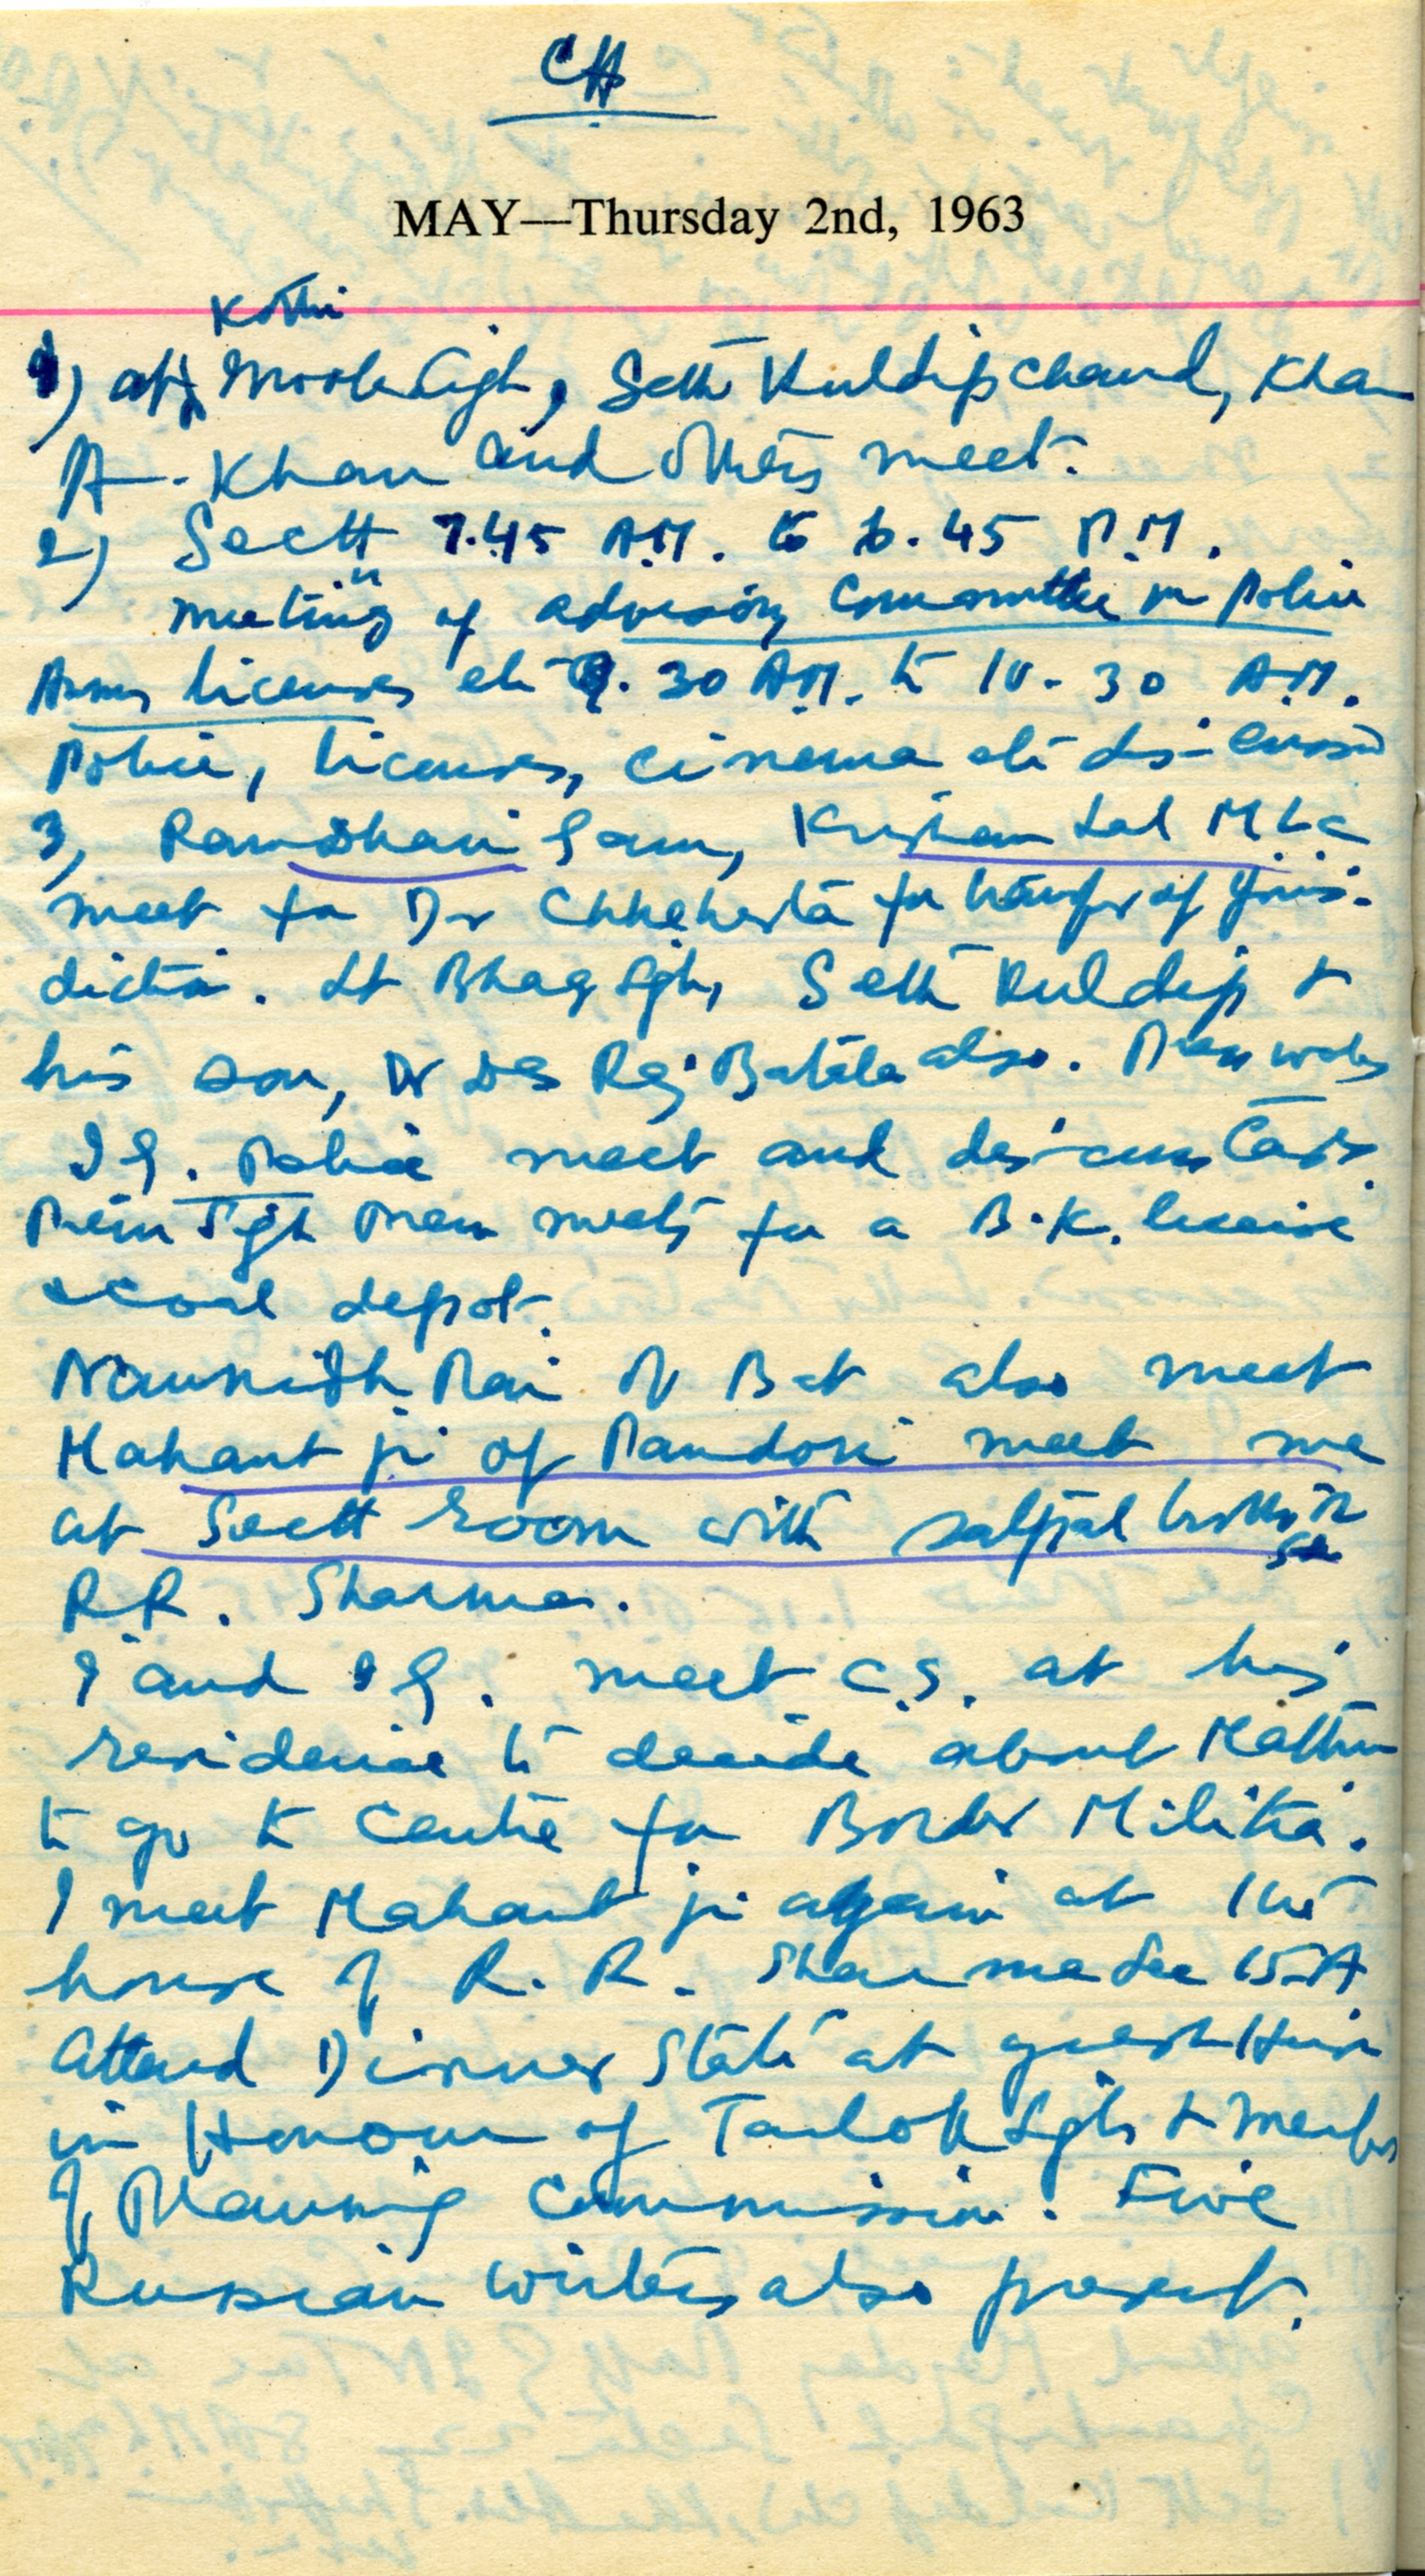 CH
MAY—Thursday 2nd, 1963
Kothi
1) at Sgh, Seth Kuldip Chand, Khan
A. Khan and others meet.
2) Sectt 7.45 A.M. to 6.45 P.M.
meeting of advisory Committee on Police
Arms licenses etc 9.30 A.M. to 10-30 A.M.
Police, licenses, cinema etc discussed
3) Ram, Krishan Lal MLC
meet for Dr Chheharta for transfer of juris-
diction. Lt Bhag Sgh, Seth Kuldip &
his son, Dr Des Raj Batala also. 
I G. Police meet and discuss cases.
Prem Sgh Prem meets for a B.K. license
& coal depot.
Rai of Bat also meet
Mahant ji of Pandori meet me
at Sectt room with Satpal brother in
R.R. Sharma.
I and I G. meet C.S. at his
residence to decide about
to go to Centre for Border Militia.
I meet Mahant ji again at the
house of R. R. Sharma Sec 15-A
Attend Dinner State at guest House
in Honour of Tarlok Sgh & members
of Planning Commission. Five
Russian writers also present.